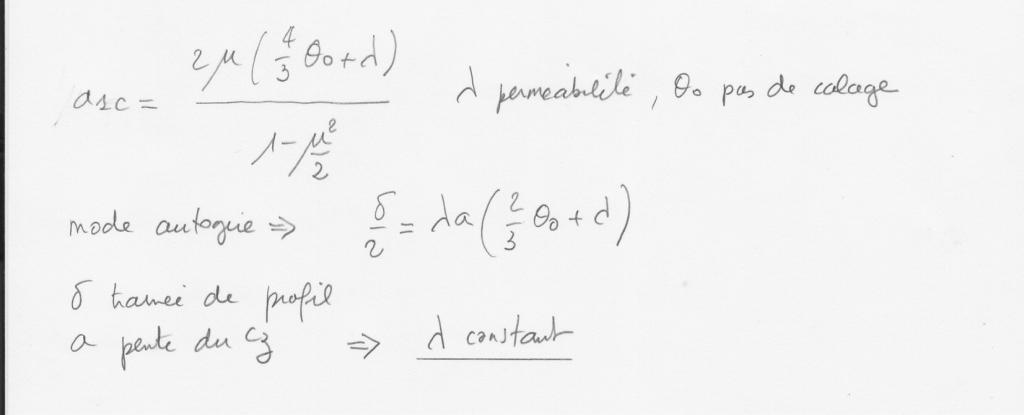 a1c = 2μ(4/3 θ0 + λ) / (1 - μ²/2) λ perméabilité, θ0 pas de calage
mode autogire ⇒ δ/2 = λa(2/3 θ0 + λ)
δ trainée de profil
a pente du Cz ⇒ λ constant